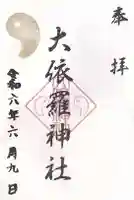 奉拝
大依羅神社
令和六年六月九日